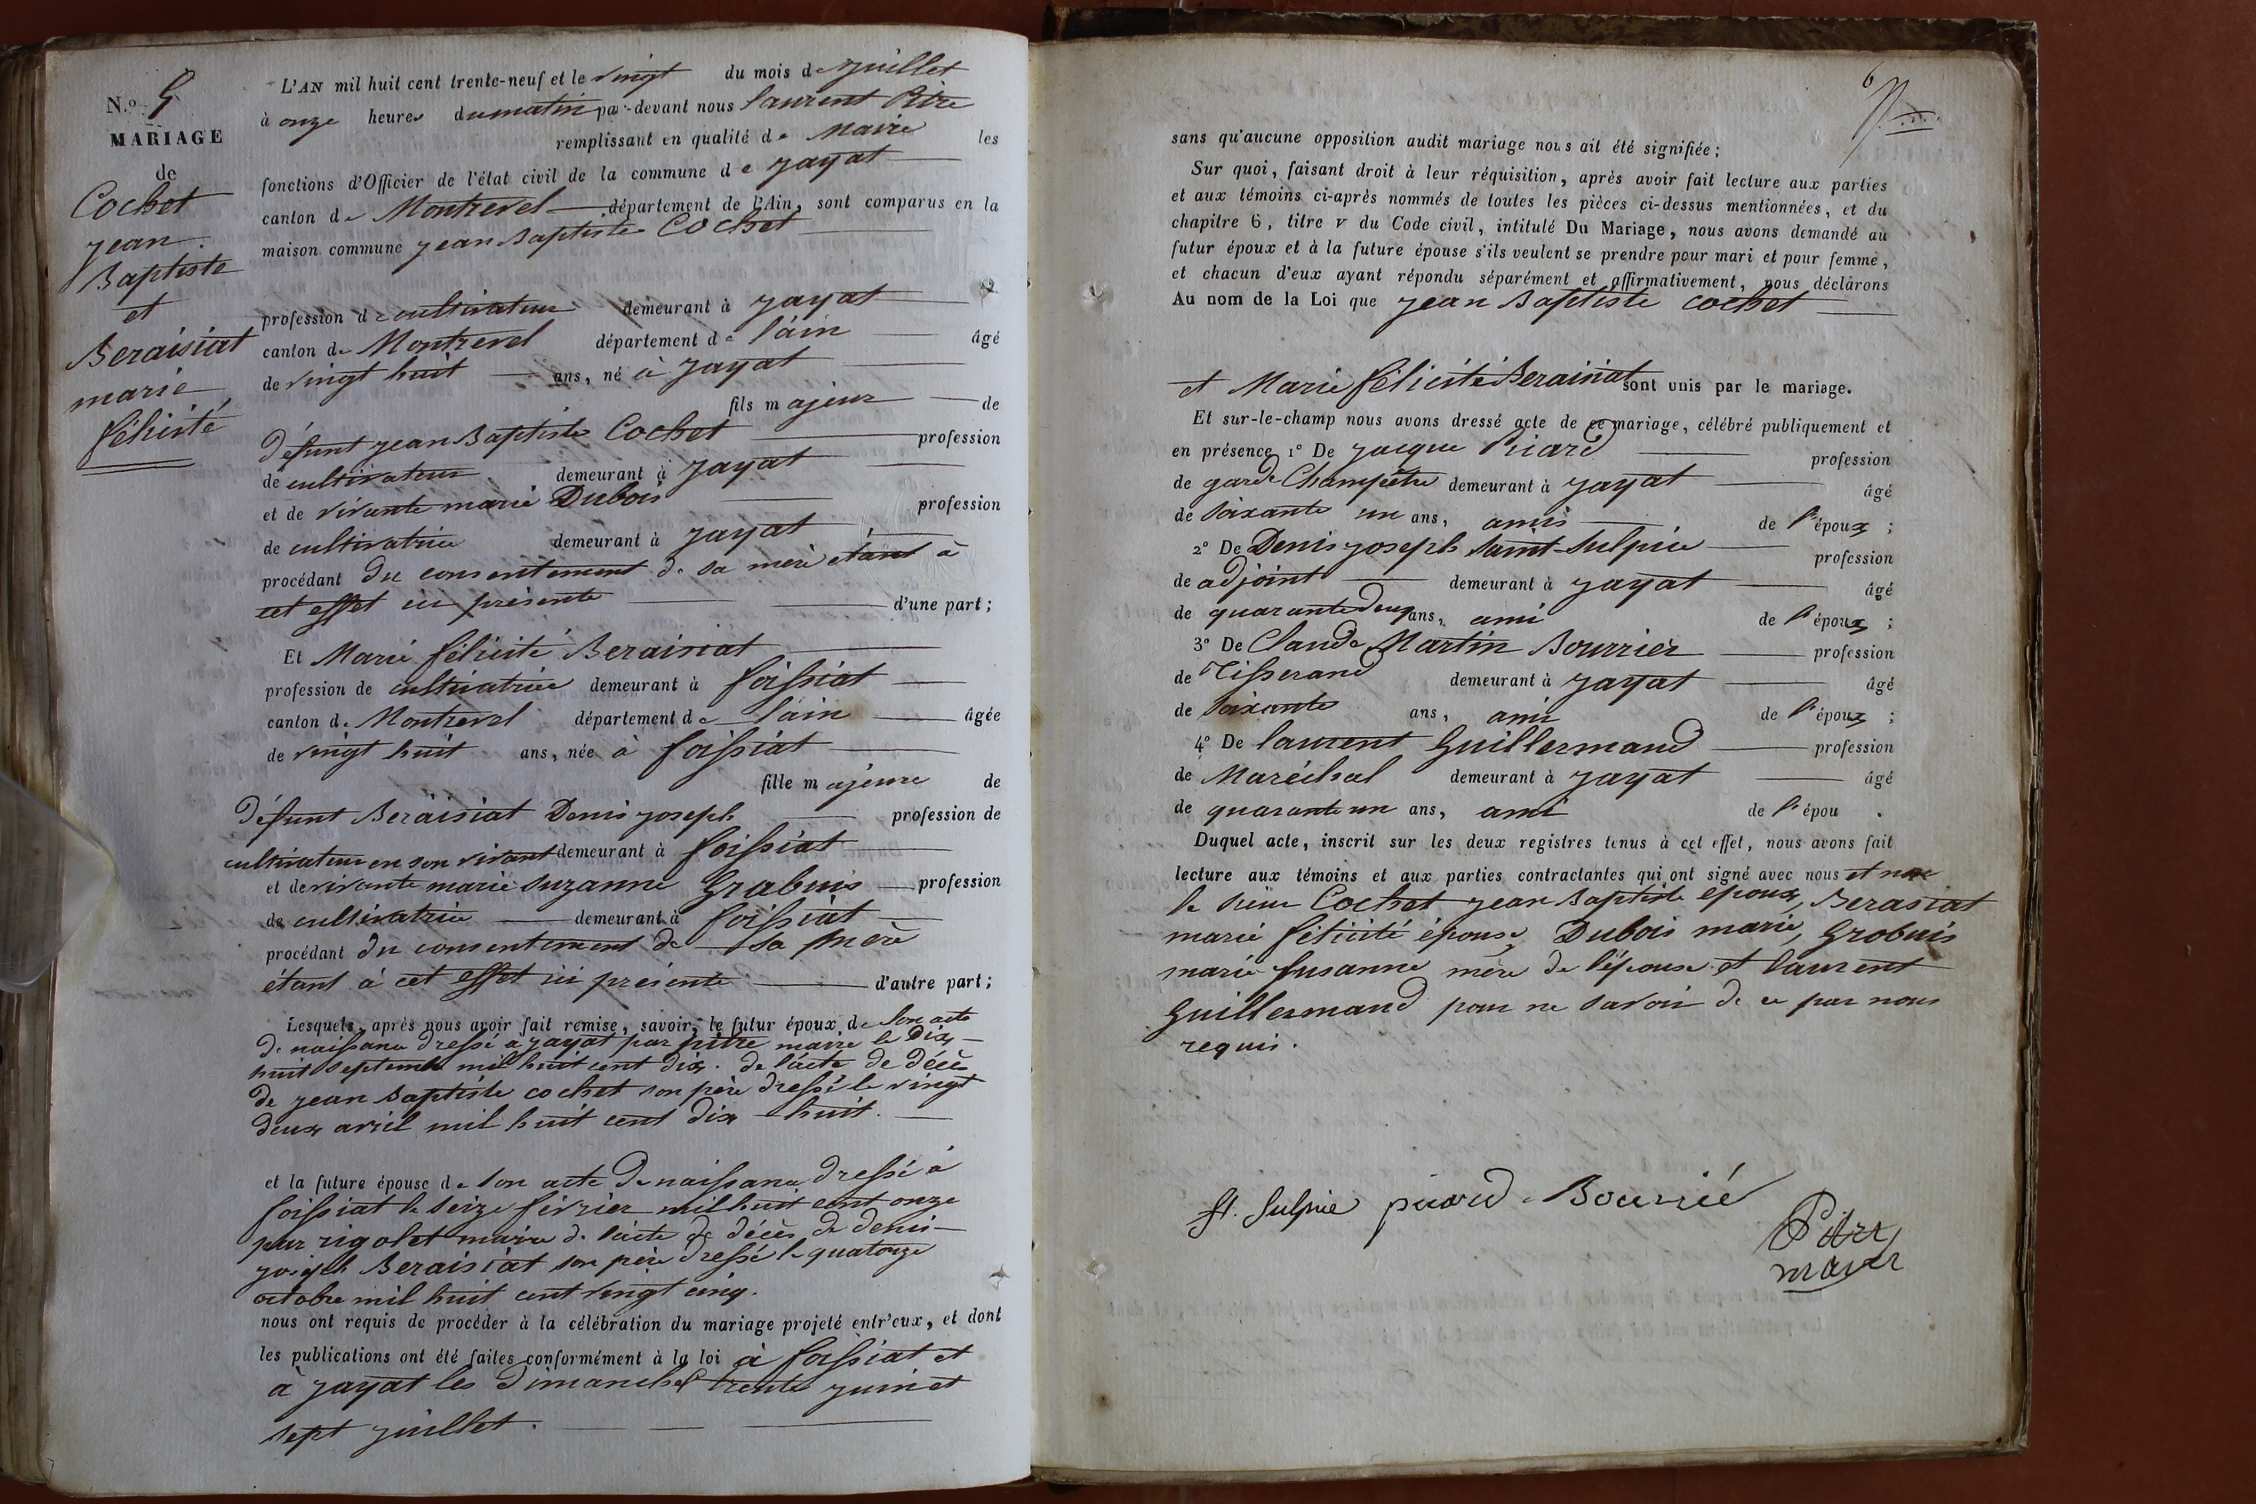 N.º 5
MARIAGE
de
Cochet
jean
Baptiste
et
Beraisiat
marie
félicité
L'AN mil huit cent trente-neuf et le vingt du mois de juillet
à onze heures du matin par-devant nous laurent Pitre
remplissant en qualité de Maire les
fonctions d'Officier de l'état civil de la commune de jayat
canton de Montrevel département de l'Ain, sont comparus en la
maison commune jean Baptiste Cochet
profession de cultivateur demeurant à jayat
canton de Montrevel département de l'ain âgé
de vingt huit ans, né à jayat
fils majeur de
défunt jean Baptiste Cochet profession
de cultivateur demeurant à jayat
et de vivante marie Dubois profession
de cultivatrice demeurant à jayat
procédant du consentement de sa mère etant à
cet effet ici présente d'une part;
Et Marie félicité Beraisiat
profession de cultivatrice demeurant à foissiat
canton de Montrevel département de l'ain âgée
de vingt huit ans, née à foissiat
fille majeure de
défunt Beraisiat Denis joseph profession de
cultivateur en son vivant demeurant à foissiat
et de vivante marie suzanne Grabuis profession
de cultivatrice demeurant à foissiat
procédant du consentement de sa mère
étant à cet effet ici présente d'autre part;
Lesquels, après nous avoir fait remise, savoir, le futur époux de son acte
de naissance dressé a jayat par pitre maire le Dix
huit septembre mil huit cent dix. de l'acte de décès
de jean Baptiste cochet son père dressé le vingt
deux avril mil huit cent dix huit.
et la future épouse de son acte de naissance dressé à
foissiat le seize février mil huit cent onze
par rigolet maire de l'acte de décès de denis
joseph Beraisiat son père dressé le quatorze
octobre mil huit cent vingt cinq.
nous ont requis de procéder à la célébration du mariage projeté entr'eux, et dont
les publications ont été faites conformément à la loi à foissiat et
à jayat les dimanches trente juin et
sept juillet.
6
sans qu'aucune opposition audit mariage nous ait été signifiée;
Sur quoi, faisant droit à leur réquisition, après avoir fait lecture aux parties
et aux témoins ci-après nommés de toutes les pièces ci-dessus mentionnées, et du
chapitre 6, titre v du Code civil, intitulé Du Mariage, nous avons demandé au
futur époux et à la future épouse s'ils veulent se prendre pour mari et pour femme,
et chacun d'eux ayant répondu séparément et affirmativement, nous déclarons
Au nom de la Loi que jean Baptiste cochet
et Marie félicité Beraisiat sont unis par le mariage.
Et sur-le-champ nous avons dressé acte de ce mariage, célébré publiquement et
en présence 1º De jacque Picard profession
de garde Champêtre demeurant à jayat âgé
de soixante un ans, amis de l'époux;
2º De Denis joseph saint-sulpice profession
de adjoint demeurant à jayat âgé
de quarante deux ans, ami de l'époux;
3º De Claude Martin Bourrier profession
de Tisserand demeurant à jayat âgé
de soixante ans, ami de l'époux;
4º De laurent Guillermand profession
de Maréchal demeurant à jayat âgé
de quarante un ans, ami de l'épou.
Duquel acte, inscrit sur les deux registres tenus à cet effet, nous avons fait
lecture aux témoins et aux parties contractantes qui ont signé avec nous et non
le sieur Cochet jean Baptiste epoux, Berasiat
marie félicité épouse, Dubois marie, Grobuis
marie susanne mère de l'épouse et laurent
Guillermand pour ne savoir de ce par nous
requis.
St. Sulpice picard Bourrié
Pitre
maire